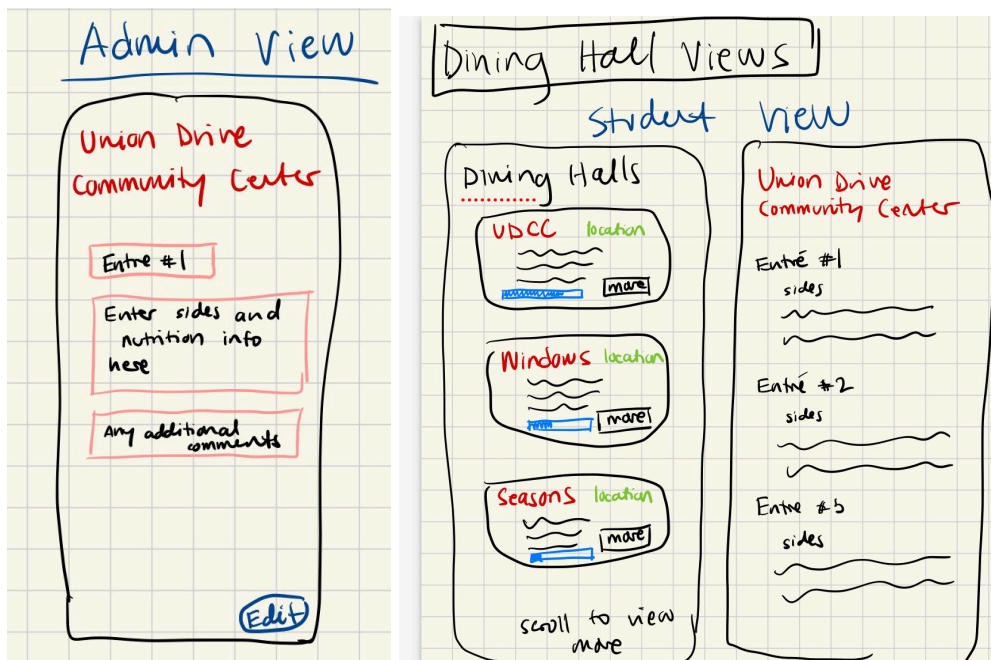 Admin View
Union Drive
Community Center
Entre #1
Enter sides and
nutrition info
here
Any additional
comments
Edit
Dining Hall Views
Student View
Dining Halls
UDCC location
more
Windows location
more
Seasons location
more
scroll to view
more
Union Drive
Community Center
Entré #1
sides
Entré #2
sides
Entre #3
sides